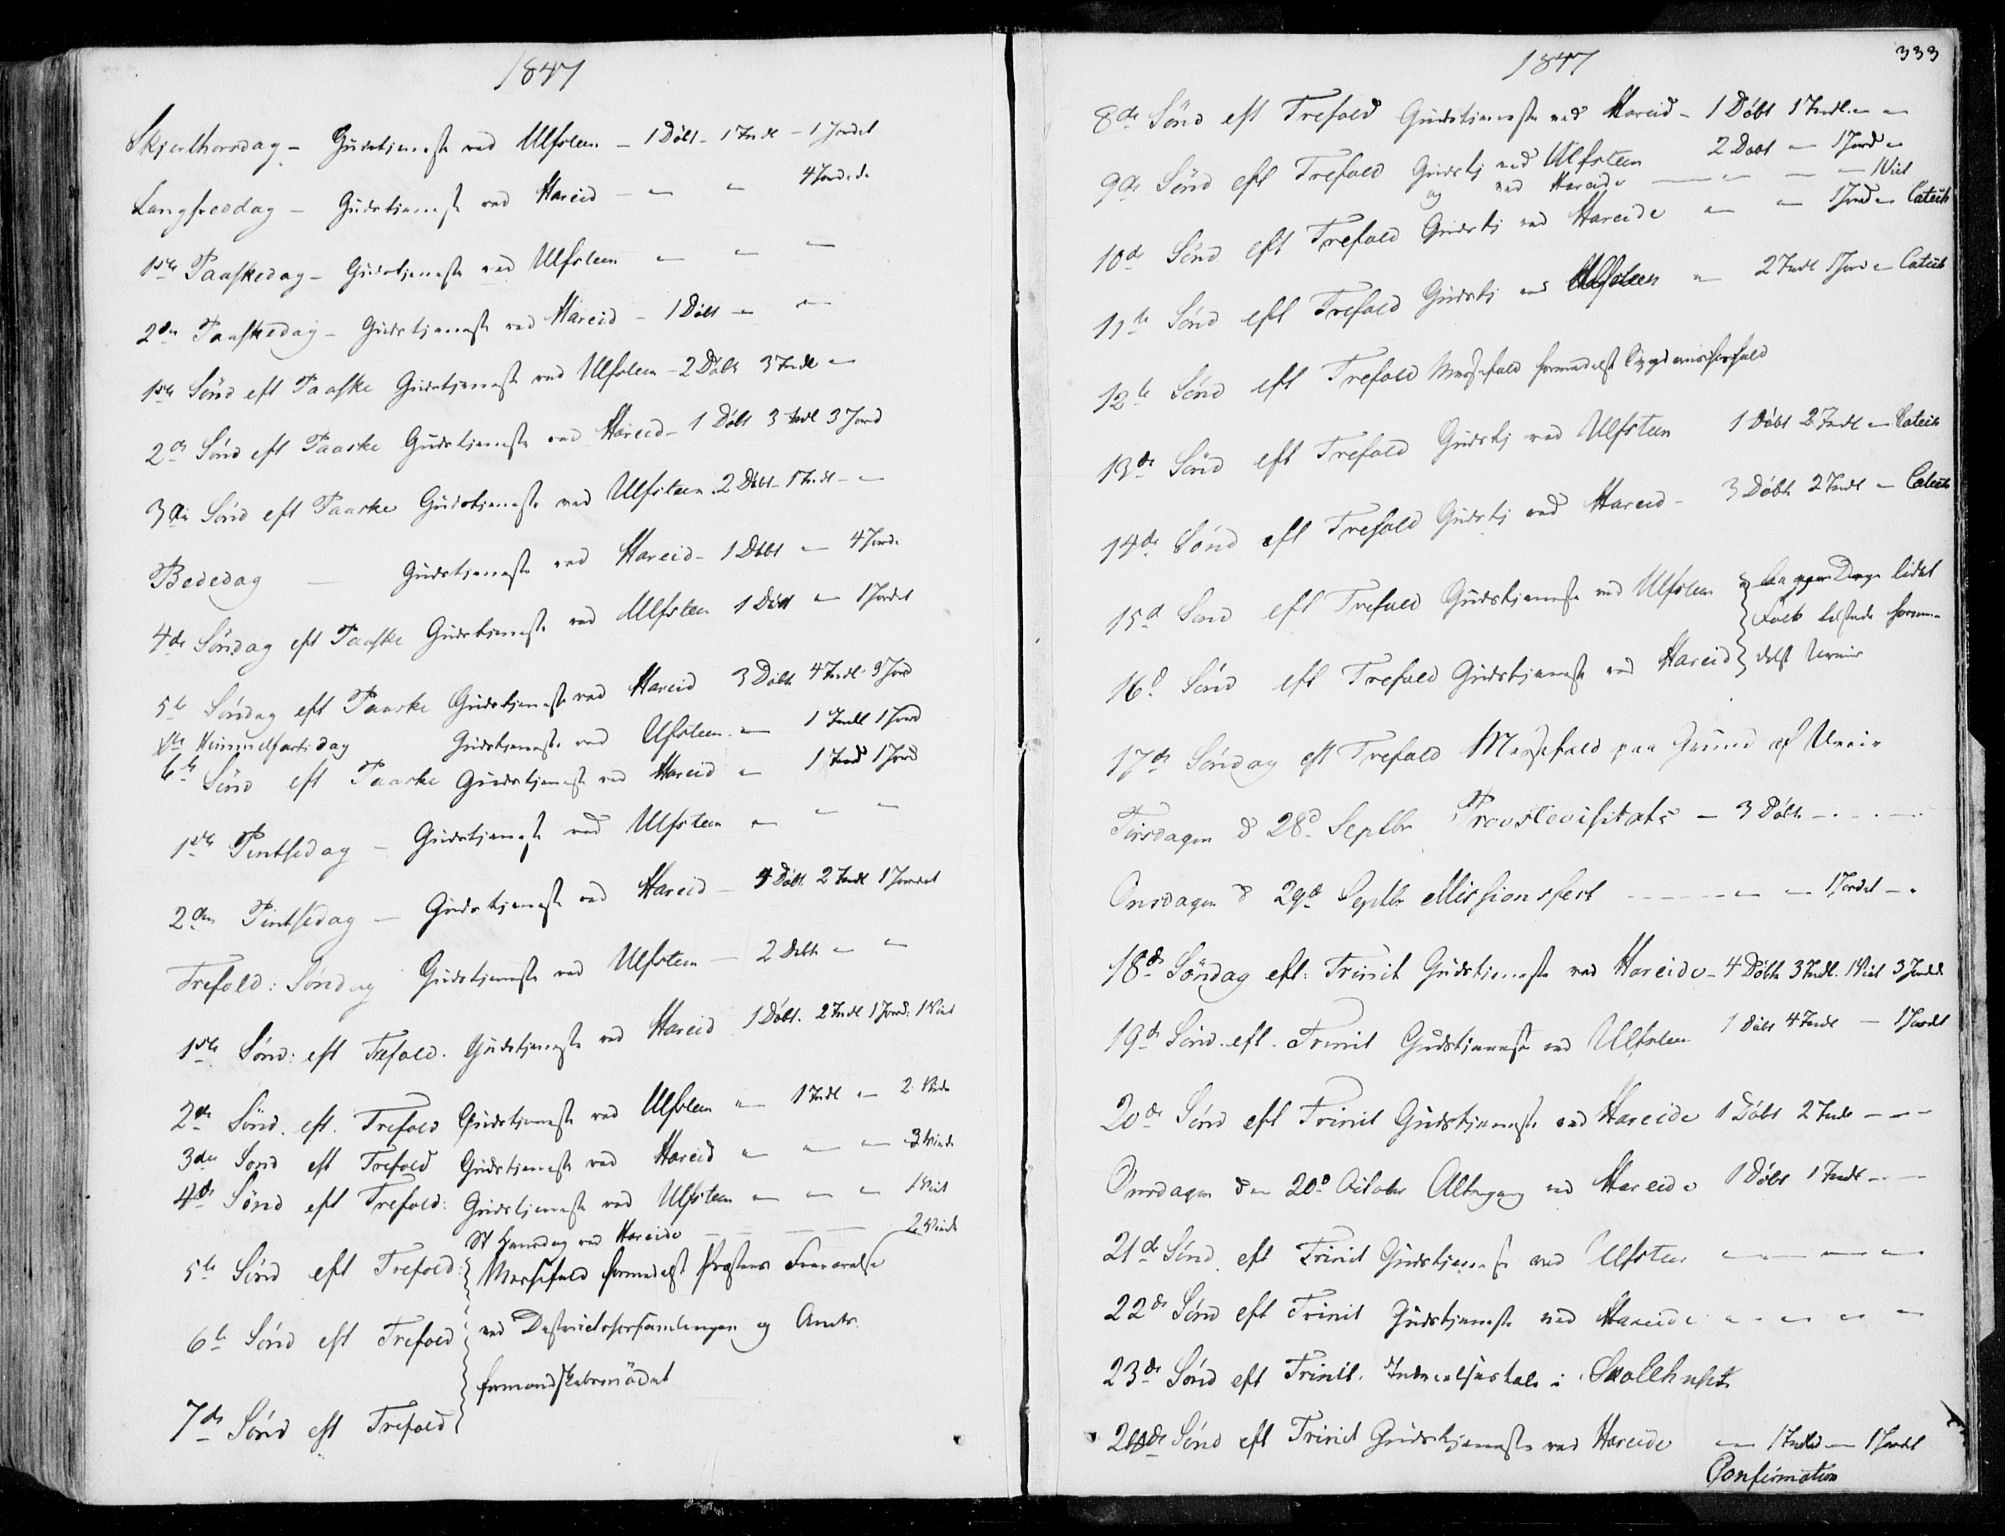 1847
Skjerthorsdag - Gudstjeneste ved Ulfsteen - 1 Døbt - 1 Indl - 1 Jordet
Langfredag - Gudstjeneste ved Hareid - " " 4 Jordede
1ste Paaskedag - Gudstjeneste ved Ulfsteen " " "
2den Paaskedag - Gudstjeneste ved Hareid - 1 Døbt " "
1ste Sönd eft Paaske Gudstjeneste ved Ulfsteen - 2 Døbte 3 Indl "
2de Sönd eft Paaske Gudstjeneste ved Hareid - 1 Døbt 3 Indl 3 Jord
3die Sönd eft Paaske Gudstjeneste ved Ulfsteen 2 Døbt - 1 Indl - "
Bededag - Gudstjeneste ved Hareid - 1 Døbt " 4 Jorde
4de Söndag eft Paaske Gudstjeneste ved Ulfsteen 1 Døbt " 1 Jordet
5te Söndag eft Paaske Gudstjeneste ved Hareid 3 Døbte 4 Indl. 3 Jord
Himmelfartsdag Gudstjeneste ved Ulfsteen " 1 Indl 1 Jord
6te Sönd eft Paaske Gudstjeneste ved Hareid " 1 Indl 1 Jord
1ste Pintsedag - Gudstjeneste ved Ulfsteen " " "
2den Pintsedag - Gudstjeneste ved Hareid - 4 Døbt 2 Indl 1 Jordet
Trefold: Söndag Gudstjeneste ved Ulfsteen - 2 Døbte " "
1ste Sönd: eft Trefold. Gudstjeneste ved Hareid 1 Døbt. 2 Indl 1 Jord: 1 Viet
2de Sönd. eft. Trefold Gudstjeneste ved Ulfsteen " 1 Indl " 2 Viede
3die Sönd eft Trefold Gudstjeneste ved Hareid " " " 3 Viede
4de Sönd eft Trefold: Gudstjeneste ved Ulfsteen " " " 1 Viet
St Hansdag ved Hareide - - - 2 Viede
5te Sönd eft Trefold: Messefald formedelst Præstens Fraværelse
6te Sönd eft Trefold ved Districtsforsamlingen og Amts-
formandskabsmödet
7de Sönd eft Trefold
1847
333
8de Sönd eft Trefold Gudstjeneste ved Hareid - 1 Døbt 1 Indl. " "
9de Sönd eft Trefold Gudstj ved Ulfsteen 2 Døbt " 1 Jord "
og ved Hareide - " - " 1 Viet
10de Sönd eft Trefold Gudstj ved Hareide " " 1 Jord " Catech
11te Sönd eft Trefold Gudstj ved Ulfsteen " 2 Indl 1 Jord " Catech
12te Sönd eft Trefold Messefald formedelst
13de Sönd eft Trefold Gudstj ved Ulfsteen 1 Døbt 2 Indl " Catech
14de Sönd eft Trefold Gudstj ved Hareid - 3 Døbte 2 Indl " Catech
15d Sönd eft Trefold Gudstjeneste ved Ulfsteen Dage lidet
Folk tilstede forme-
16d Sönd eft Trefold Gudstjeneste ved Hareid delst Uveir
17de Söndag eft Trefold Messefald paa Grund af Uveir
Tirsdagen d 28d Septbr Provstevisitats - 3 Døbte - . . . -
Onsdagen d 29d Septbr Missionsfest - - - " " 1 Jordet - .
18de Söndag eft: Trinit Gudstjeneste ved Hareide - 4 Døbte 3 Indl. 1 Viet 3 Jordede
19de Sönd. eft. Trinit Gudstjeneste ved Ulfsteen 1 Døbt 4 Indl - 1 Jordet
20de Sönd eft Trinit Gudstjeneste ved Hareide 1 Døbt 2 Indl - - -
Onsdagen den 20d October Altergang ved Hareide 1 Døbt 1 Indl - - -
21de Sönd. eft Trinit Gudstjeneste ved Ulfsten " " " "
22de Sönd eft Trinit Gudstjeneste ved Hareide " " " "
23de Sönd eft Trinit. i Skolehuset
24de Sönd eft Trinit Gudstjeneste ved Hareide " 1 Indled " 1 Jordet
Confirmation